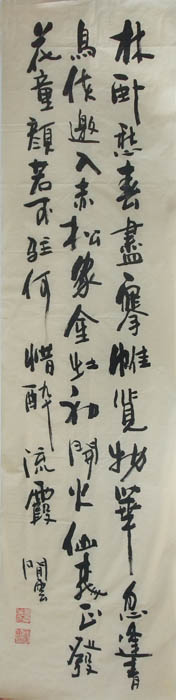 林臥愁春盡搴帷覽物華忽逢青
鳥使邀入赤松家金灶初開火仙桃正發
花童顏若可駐何惜醉流霞
閒雲